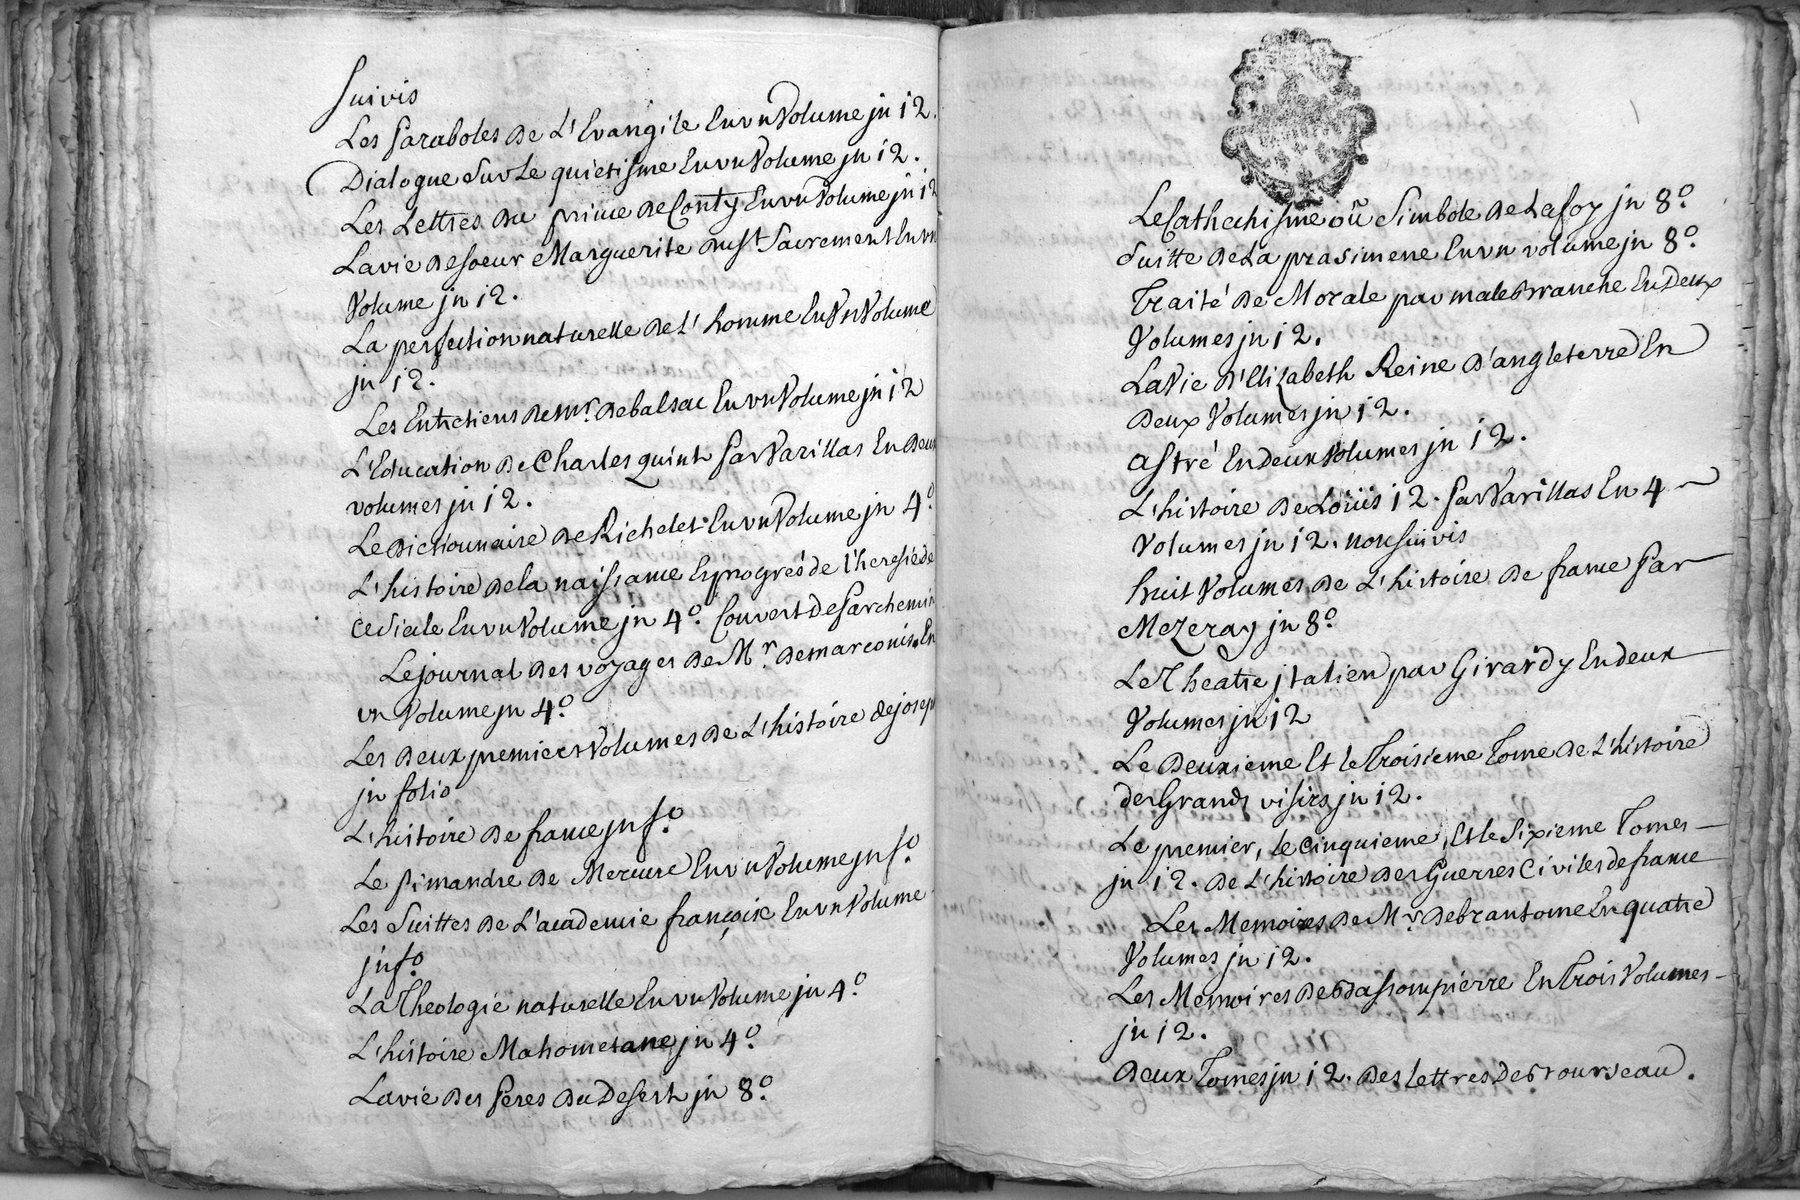 Suivis
Les Paraboles de L'Evangile En vn Volume jn 12.
Dialogue Sur Le quietisme En vn Volume jn 12.
Les Lettres du prince de Conty En vn Volume jn 12
La vie de soeur Marguerite du st. Sacrement En vn
Volume jn 12.
La perfection naturelle de L'homme En Vn Volume
jn 12.
Les Entretiens de mr. de balsac En vn Volume jn 12
L'Education de Charles quint Par Varillas En deux
volumes jn 12.
Le dictionnaire de Richelet En vn Volume jn 4º.
L'histoire de la naissance Et progrés de l'heresie de
ce siecle En vn Volume jn 4º. Couvert de Parchemin
Le journal des voyages de Mr. de marconis. En
vn Volume jn 4º.
Les deux premiers Volumes de L'histoire de joseph
jn folio
L'histoire de france jn fº
Le Pimandre de Mercure En vn Volume jn fº.
Les Suittes de L'academie françoise En vn Volume
jn fº
La Theologie naturelle En vn Volume jn 4º.
L'histoire Mahometane jn 4º.
La vie des Peres du Desert jn 8º.
Le Cathechisme oû Simbole de La foy jn 8º.
Suitte de La prasimene En vn volume jn 8º.
Traité de Morale par malebranche En Deux
Volumes jn 12.
La Vie d'Elizabeth Reine d'angleterre En
deux Volumes jn 12.
astré En deux Volumes jn 12.
L'histoire de Loüis 12. Par Varillas En 4
Volumes jn 12. non suivis
huit Volumes de L'histoire de france Par
Mezeray jn 8º
Le Theatre jtalien par Girardy En deux
Volumes jn 12
Le Deuxieme Et le Troisieme Tome de L'histoire
des Grands visirs jn 12.
Le premier, le cinquieme, Et le Sixieme Tomes
jn 12. de L'histoire des Guerres Civiles de france
Les Memoires de Mr. de brantome En quatre
Volumes jn 12.
Les Memoires de bassompierre En Trois Volumes
jn 12.
deux Tomes jn 12. des lettres de brourseau.